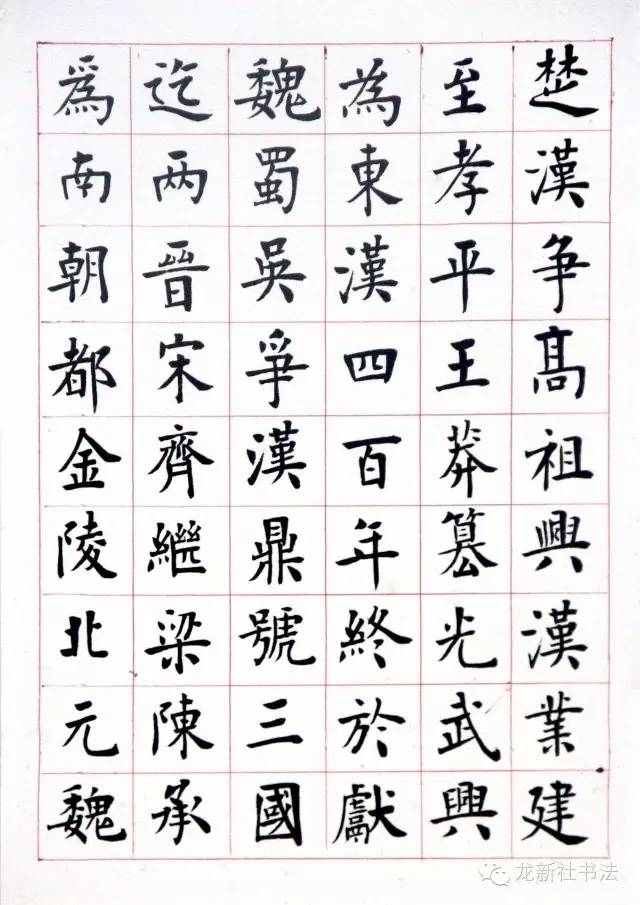 楚漢争髙祖興漢業建
至孝平王莽篡光武興
為東漢四百年終於獻
魏蜀吳爭漢鼎號三國
迄两晉宋齊繼梁陳承
爲南朝都金陵北元魏
龙新社书法